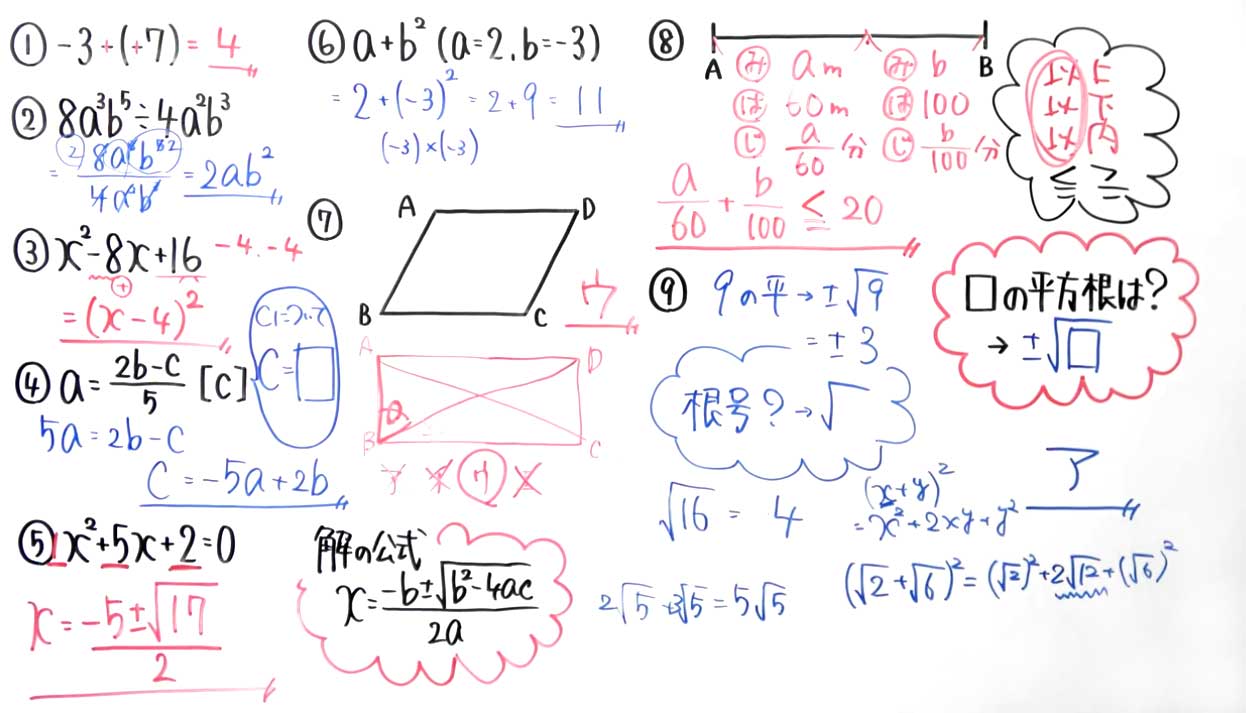 ① -3+(+7) = 4
② 8a³b⁵÷4a²b³
= 8a³b⁵ / 4a²b³ = 2ab²
③ x²-8x+16 -4.-4
= (x-4)²
④ a = (2b-c)/5 [c]
cについて
c=□
5a = 2b-c
c = -5a+2b
⑤ 1x²+5x+2=0
x = (-5±√17)/2
解の公式
x = (-b±√(b²-4ac))/2a
⑥ a+b² (a=2.b=-3)
= 2+(-3)² = 2+9 = 11
(-3)×(-3)
⑦
A D
B C
ウ
A D
B C
ア イ ウ エ
⑧
A B
み a m み b
は 60m は 100
じ a/60 分 じ b/100 分
a/60 + b/100 ≦ 20
以上
以下
以内
≦ ≧
⑨ 9の平→±√9
= ±3
根号?→√
□の平方根は?
→ ±√□
√16 = 4
ア
(x+y)²
= x²+2xy+y²
2√5+3√5=5√5
(√2+√6)² = (√2)²+2√12+(√6)²